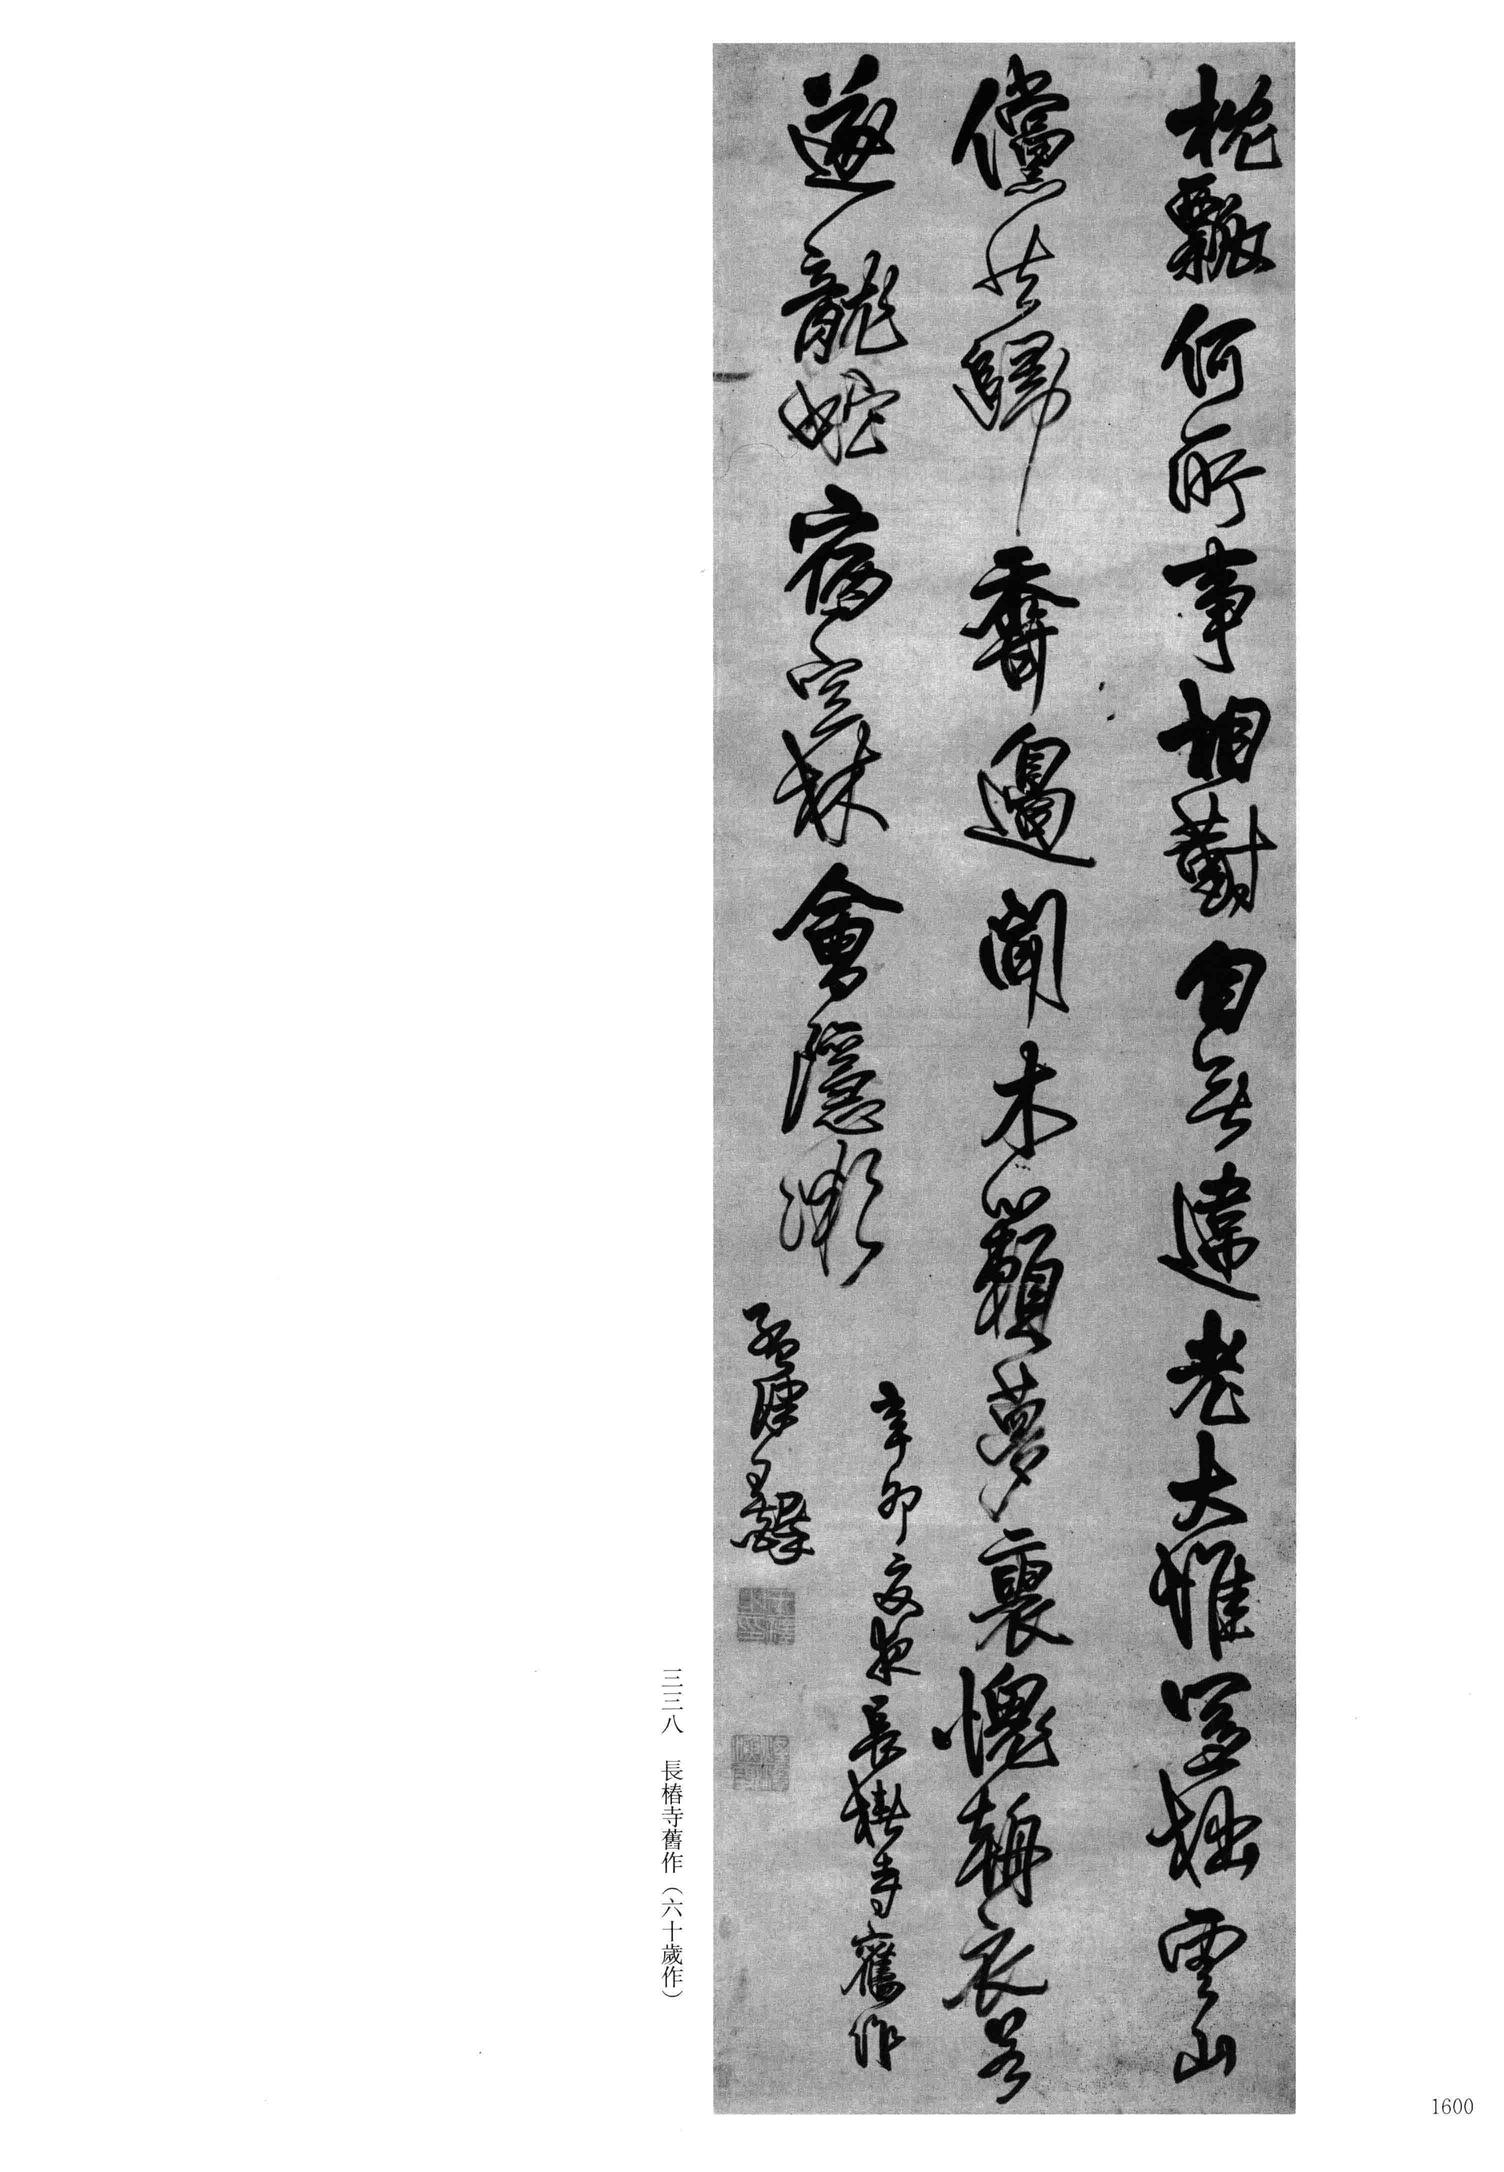 枕何所事相對自無違老大惟拙雲山
儻歸邊聞木籟夢裏愧朝衣若
遂龍蛇宿空林會隱
辛卯夏夜長椿寺舊作
孟津王鐸
三三八　長椿寺舊作（六十歲作）
1600